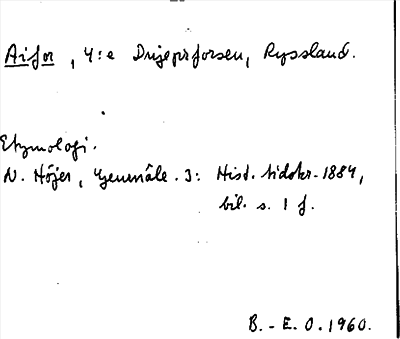 Aifor, 4:e Dnjeprforsen, Ryssland.
Etymologi.
N. Höjer, Genmäle. I: Hist. tidskr. 1884,
bil. s. 1 f.
B.-E.O. 1960.